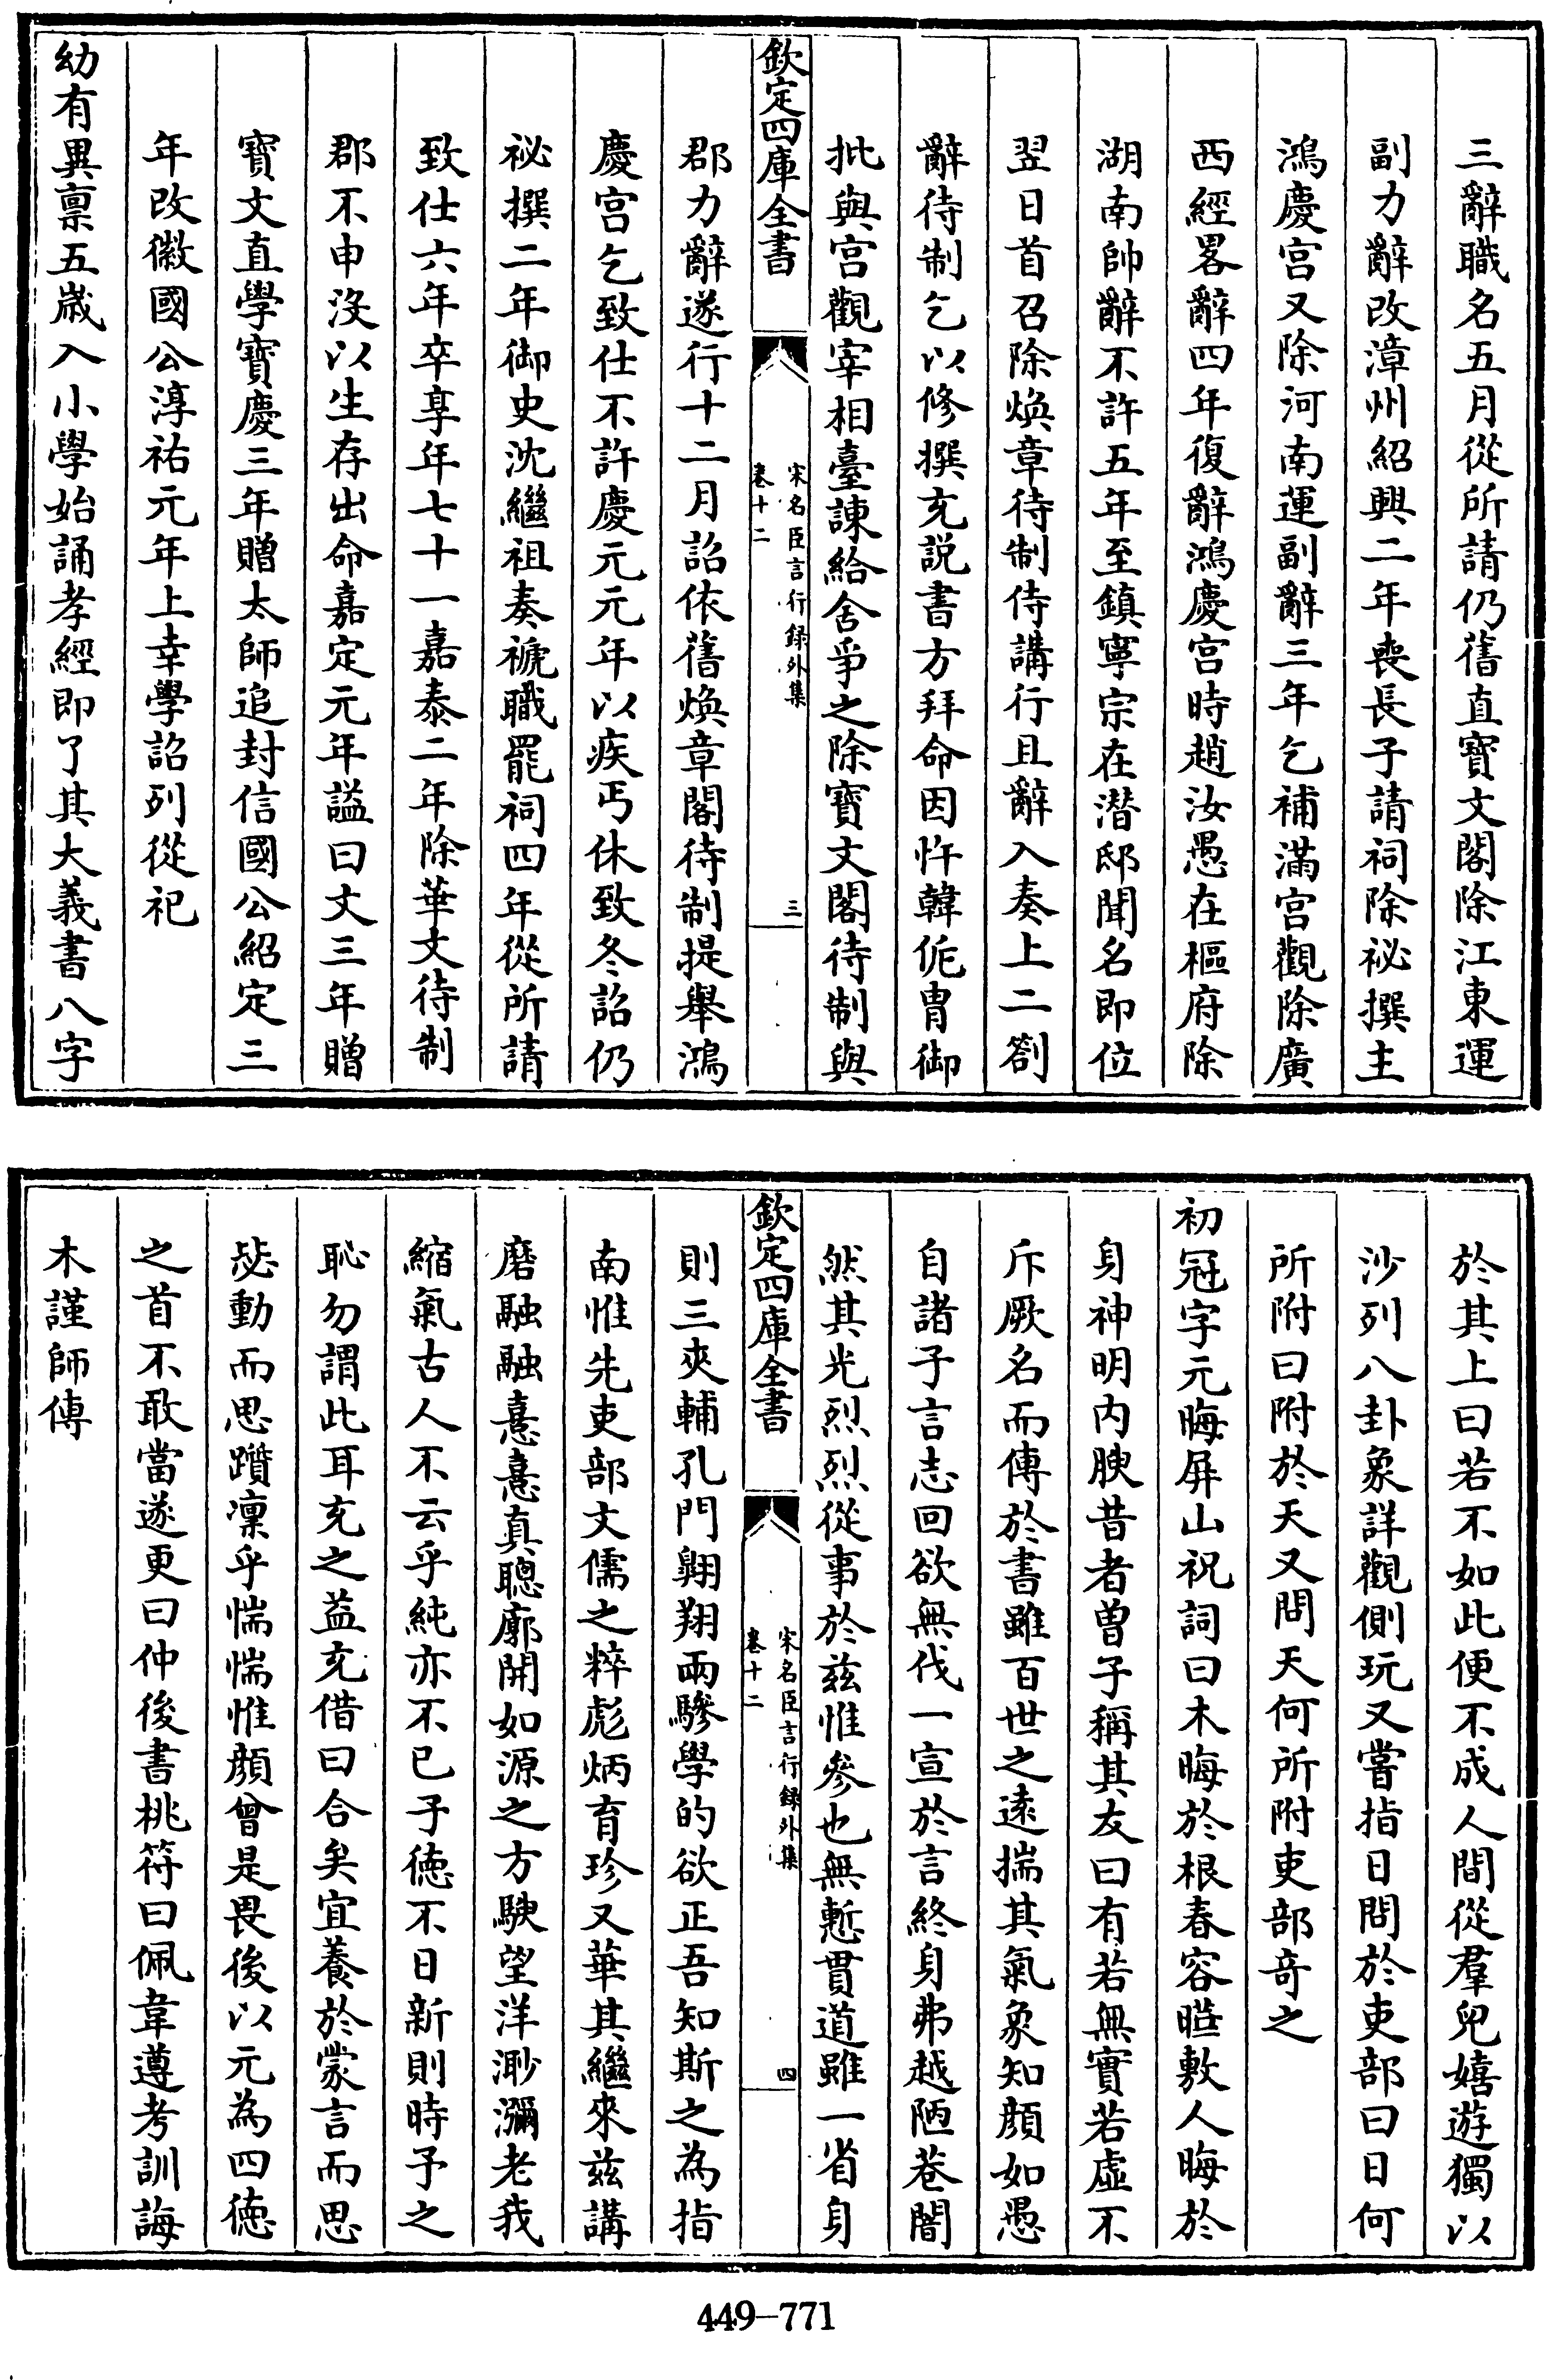 三辭職名五月從所請仍舊直寶文閣除江東運
副力辭改漳州紹興二年喪長子請祠除祕撰主
鴻慶宫又除河南運副辭三年乞補滿宫觀除廣
西經畧辭四年復辭鴻慶宫時趙汝愚在樞府除
湖南帥辭不許五年至鎮寧宗在潜邸聞名即位
翌日首召除煥章待制侍講行且辭入奏上二劄
辭待制乞以修撰充説書方拜命因忤韓侂胄御
批與宫觀宰相臺諫給舍爭之除寶文閣待制與
欽定四庫全書
宋名臣言行録外集
卷十二
三
郡力辭遂行十二月詔依舊煥章閣待制提舉鴻
慶宫乞致仕不許慶元元年以疾丐休致冬詔仍
祕撰二年御史沈繼祖奏禠職罷祠四年從所請
致仕六年卒享年七十一嘉泰二年除華文待制
郡不申没以生存出命嘉定元年謚曰文三年贈
寶文直學寶慶三年贈太師追封信國公紹定三
年改徽國公淳祐元年上幸學詔列從祀
幼有異禀五歲入小學始誦孝經即了其大義書八字
於其上曰若不如此便不成人間從羣兒嬉遊獨以
沙列八卦象詳觀側玩又嘗指日問於吏部曰日何
所附曰附於天又問天何所附吏部竒之
初冠字元晦屏山祝詞曰木晦於根春容曄敷人晦於
身神明内腴昔者曾子稱其友曰有若無實若虚不
斥厥名而傳於書雖百世之逺揣其氣象知顔如愚
自諸子言志回欲無伐一宣於言終身弗越陋巷闇
然其光烈烈從事於兹惟參也無慙貫道雖一省身
欽定四庫全書
宋名臣言行録外集
卷十二
四
則三夾輔孔門翺翔兩驂學的欲正吾知斯之為指
南惟先吏部文儒之粹彪炳育珍又華其繼來兹講
磨融融憙憙真聰廓開如源之方駛望洋渺瀰老我
縮氣古人不云乎純亦不已予徳不日新則時予之
恥勿謂此耳充之益充借曰合矣宜養於蒙言而思
毖動而思躓凜乎惴惴惟顔曾是畏後以元為四徳
之首不敢當遂更曰仲後書桃符曰佩韋遵考訓誨
木謹師傳
449-771